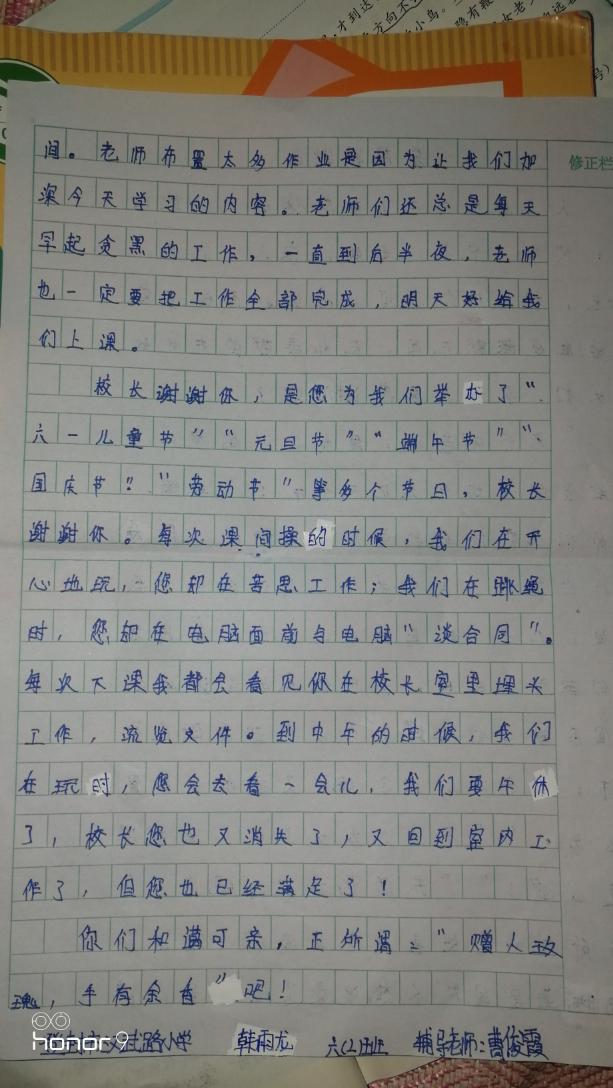 间。老师布置太多作业是因为让我们加
深今天学习的内容。老师们还总是每天
早起贪黑的工作，一直到后半夜，老师
也一定要把工作全部完成，明天好给我
们上课。
校长谢谢你，是您为我们举办了“
六一儿童节”“元旦节”“端午节”“
国庆节”“劳动节”等多个节日，校长
谢谢你。每次课间操的时候，我们在开
心地玩，您却在苦思工作；我们在跳绳
时，您却在电脑面前与电脑“谈合同”。
每次下课我都会看见你在校长室里埋头
工作，流览文件。到中午的时候，我们
在玩时，您会去看一会儿，我们要午休
了，校长您也又消失了，又回到室内工
作了，但您也已经满足了！
你们和蔼可亲，正所谓：“赠人玫
瑰，手有余香”吧！
路小学 韩雨龙 六(2)班 辅导老师：曹俊霞
修正栏
honor 9